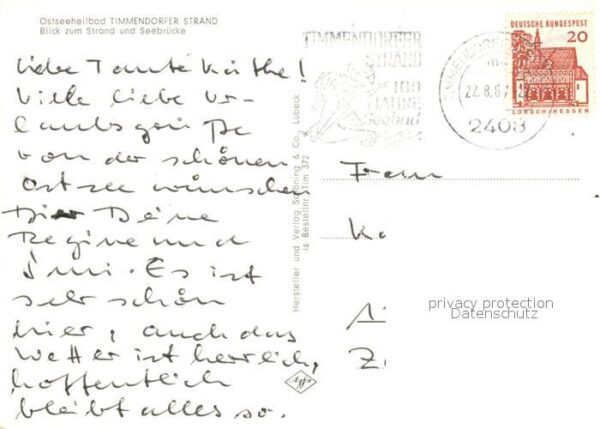 Ostseeheilbad TIMMENDORFER STRAND
Blick zum Strand und Seebrücke
Liebe Tante Käthe!
Viele liebe Ur-
laubsgrüße
von der schönen
Ostsee wünschen
Dir Deine
Regine und
Es ist
sehr schön
hier, auch das
Wetter ist herrlich,
hoffentlich
bleibt alles so.
Hersteller und Verlag Schöning & Co., Lübeck
Bestellnr. Tim 372
TIMMENDORFER
STRAND
100
JAHRE
Seebad
TIMMENDORFER
22.8.67
2408
DEUTSCHE BUNDESPOST
20
LORSCH/HESSEN
Frau
privacy protection
Datenschutz
Agfa